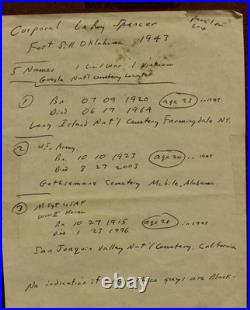 Corporal LeRoy Spencer
Fort Sill Oklahoma 1943
5 Names 1 Civil War 1 Vietnam
Google Nat'l Cemetery
① Bn 07 09 1920 age 23 in 1943
Died 06 17 1964
Long Island Nat'l Cemetery Farmingdale NY.
② U.S. Army.
Bn. 10 10 1923 age 20 in 1943
D 8 27 2003
Gethsemane Cemetery Mobile, Alabama.
③ MSgt USAF
WWII Korea
Bn 10 27 1915 age 28 in 1943
Died 1 23 1996
San Joaquin Valley Nat'l Cemetery, California
No indication if guys are Black.